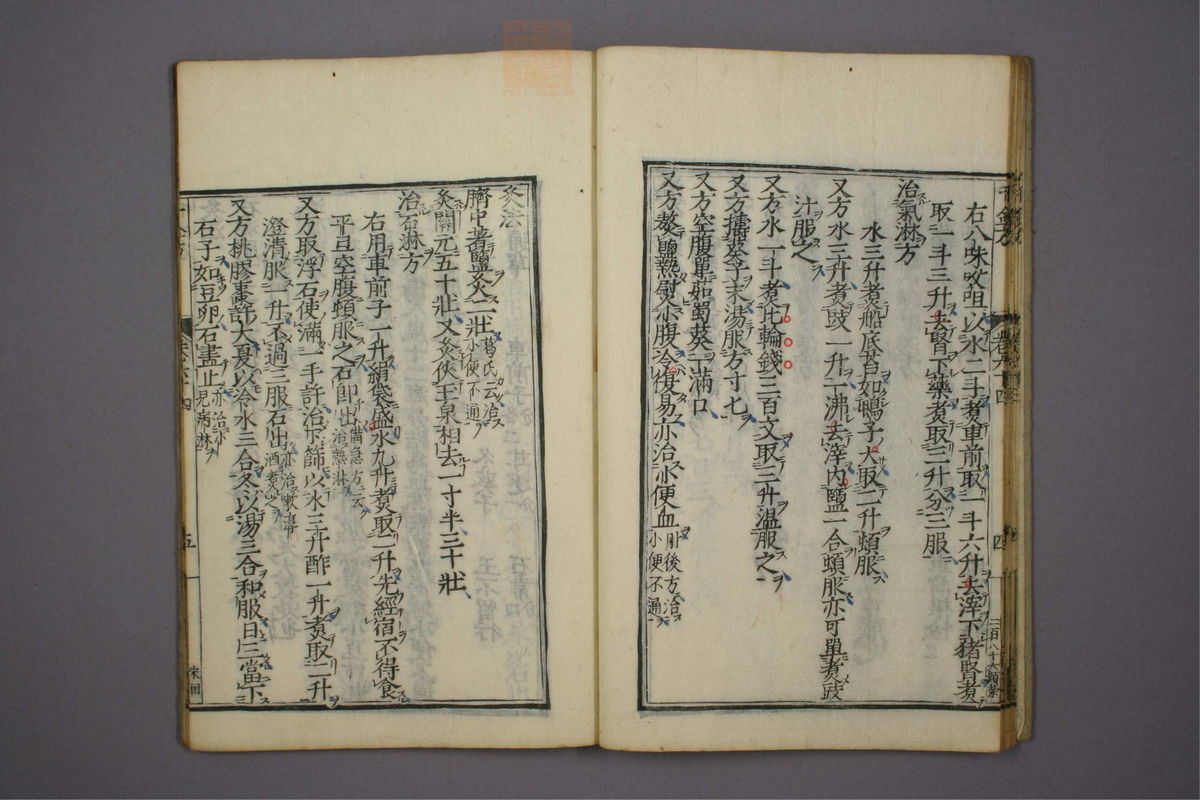 右八味㕮咀以水二斗煮車前取一斗六升去滓下猪腎煮
取一斗三升去腎下藥煮取三升分三服
治氣淋方
水三升煮船底苔如鴨子大取二升頓服
又方水三升煮豉一升一沸去滓內鹽一合頓服亦可單煮豉
汁服之
又方水一斗煮比輪錢三百文取三升溫服之
又方擣葵子末湯服方寸匕
又方空腹單茹蜀葵一滿口
又方熬鹽熱熨小腹冷復易亦治小便血肘後方治小便不通
四
灸法
臍中著鹽灸三壯葛氏云治小便不通
灸關元五十壯又灸俠玉泉相去一寸半三十壯
治石淋方
右用車前子一升絹袋盛水九升煮取三升先經宿不得食
平旦空腹頓服之石即出備急方云治熱淋
又方取浮石使滿一手許治下篩以水三升酢一升煮取二升
澄清服一升不過三服石出亦治嗽淳酒煮之
又方桃膠棗許大夏以冷水三合冬以湯三合和服日三當下
石子如豆卵石盡止亦治小兒病淋
千金方
五